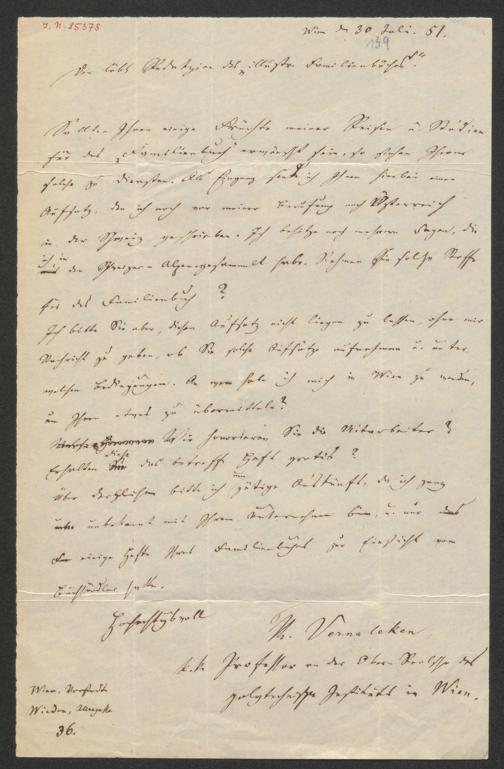 J.N. 85378
Wien d. 30 Juli. 51.
139
Der löbl. Redakzion des „illustr. Familienbuches".
Sollten Ihnen einige Früchte meiner Reisen u. Studien
für das „Familienbuch" erwünscht sein, so stehen Ihnen
solche zu Diensten. Als Eingang sende ich Ihnen hierbei einen
Aufsatz, den ich noch vor meiner Berufung nach Österreich
in der Schweiz geschrieben. Ich besitze noch mehrere Sagen, die
ich in den Schweizer-Alpen gesammelt habe. Nehmen Sie solche Stoffe
für das Familienbuch?
Ich bitte Sie aber, diesen Aufsatz nicht liegen zu lassen, ohne mir
Nachricht zu geben, ob Sie solche Aufsätze aufnehmen u. unter
welchen Bedingungen. An wen habe ich mich in Wien zu wenden,
um Ihnen etwas zu übermitteln?
Wie honorieren Sie die Mitarbeiter?
Erhalten diese das betreffende Heft gratis?
Über dergleichen bitte ich um gütige Auskunft, da ich ganz
unbekannt mit Ihrem Unternehmen bin, u. nur
einige Hefte Ihres Familienbuches zur Einsicht vom
Buchhändler hatte.
Hochachtungsvoll
Th. Vernaleken
k.k. Professor an der Obern Realschule des
polytechnischen Instituts in Wien.
Wien, Vorstadt
Wieden,
36.